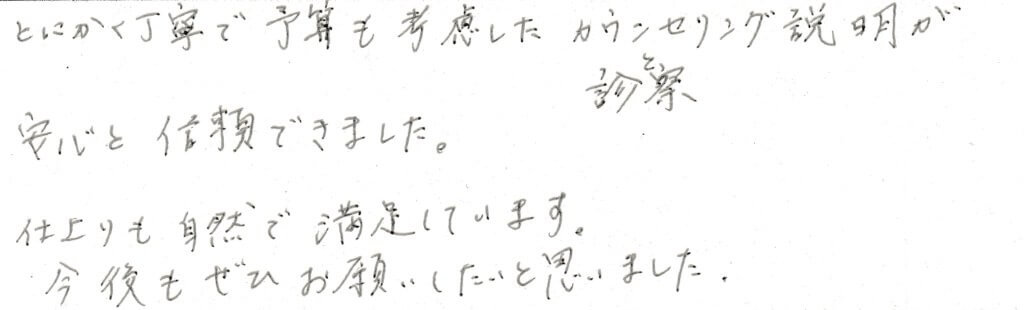 とにかく丁寧で予算も考慮したカウンセリング説明が
と、診察
安心と信頼できました。
仕上りも自然で満足しています。
今後もぜひお願いしたいと思いました.